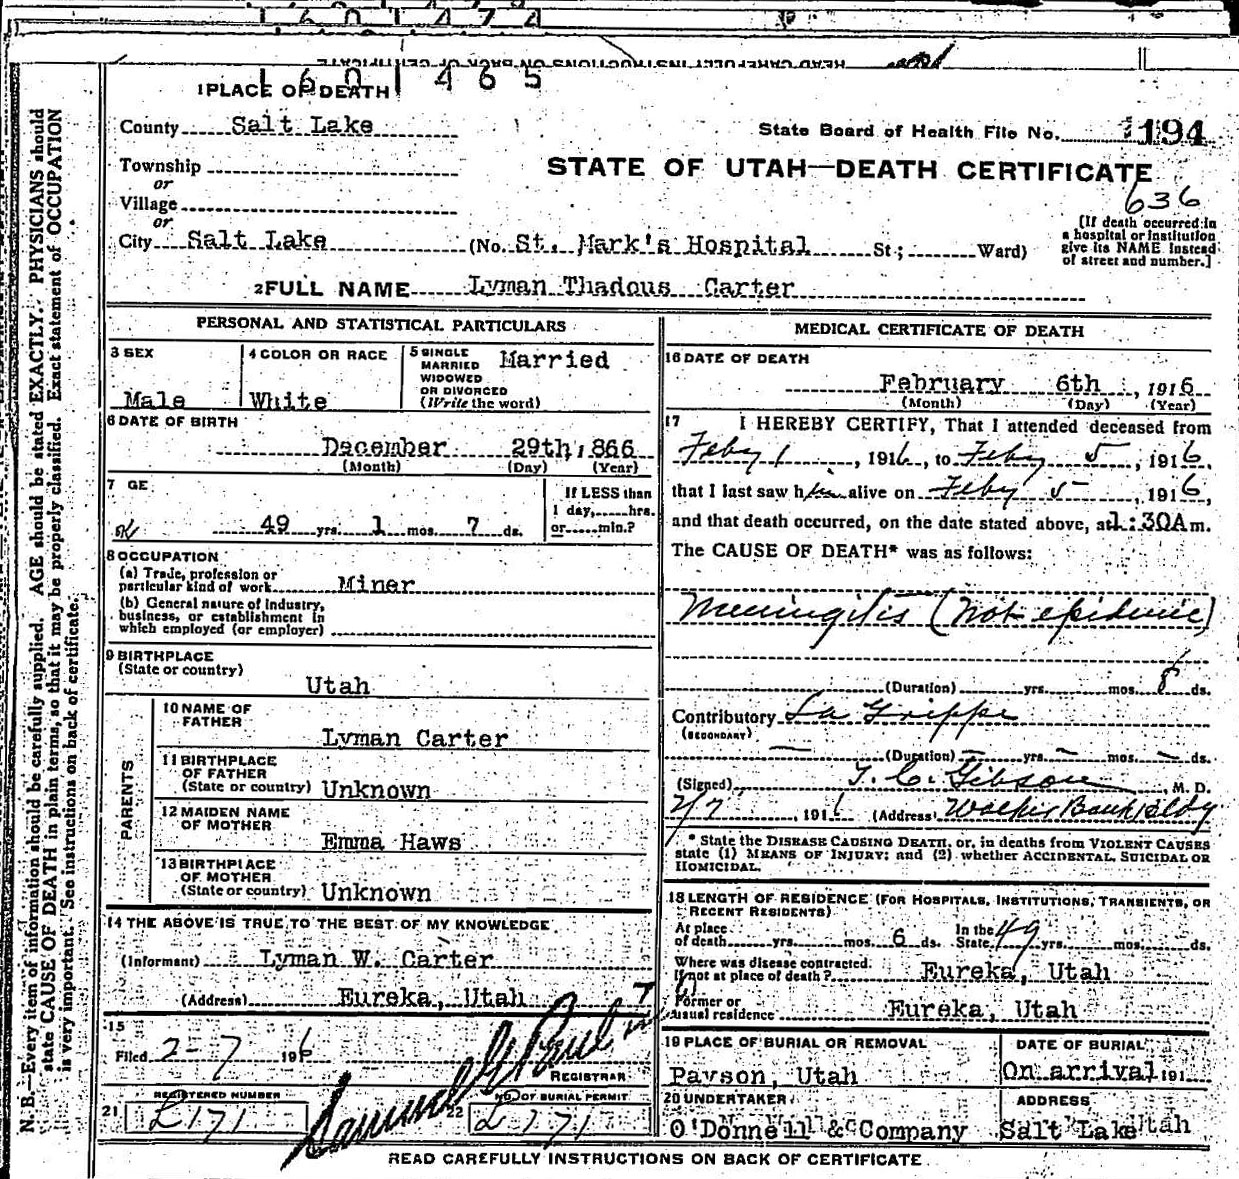 1 6 0 1 4 7 4
READ CAREFULLY INSTRUCTIONS ON BACK OF CERTIFICATE
1 6 0 1 4 6 5
1 PLACE OF DEATH
County Salt Lake
State Board of Health File No. 194
Township
or
Village
or
City Salt Lake (No. St. Mark's Hospital St.; Ward)
STATE OF UTAH—DEATH CERTIFICATE
636
[If death occurred in
a hospital or institution
give its NAME instead
of street and number.]
2 FULL NAME Lyman Thadous Carter
PERSONAL AND STATISTICAL PARTICULARS
3 SEX
Male
4 COLOR OR RACE
White
5 SINGLE
MARRIED
WIDOWED
OR DIVORCED
(Write the word)
Married
6 DATE OF BIRTH
December 29th, 866
(Month) (Day) (Year)
7 GE
49 yrs. 1 mos. 7 ds.
If LESS than
1 day, hrs.
or min.?
8 OCCUPATION
(a) Trade, profession or
particular kind of work Miner
(b) General nature of industry,
business, or establishment in
which employed (or employer)
9 BIRTHPLACE
(State or country)
Utah
PARENTS
10 NAME OF
FATHER
Lyman Carter
11 BIRTHPLACE
OF FATHER
(State or country) Unknown
12 MAIDEN NAME
OF MOTHER
Emma Haws
13 BIRTHPLACE
OF MOTHER
(State or country) Unknown
14 THE ABOVE IS TRUE TO THE BEST OF MY KNOWLEDGE
(Informant) Lyman W. Carter
(Address) Eureka, Utah
15
Filed 2-7 1916
Samuel G Paul
REGISTRAR
21
REGISTERED NUMBER
E171
22
NO. OF BURIAL PERMIT
E171
MEDICAL CERTIFICATE OF DEATH
16 DATE OF DEATH
February 6th, 1916
(Month) (Day) (Year)
17 I HEREBY CERTIFY, That I attended deceased from
Feby 1, 1916, to Feby 5, 1916,
that I last saw him alive on Feby 5, 1916,
and that death occurred, on the date stated above, at 1:30A m.
The CAUSE OF DEATH* was as follows:
Meningitis (not epidemic)
(Duration) yrs. mos. 8 ds.
Contributory La Grippe
(SECONDARY)
(Duration) — yrs. — mos. — ds.
(Signed) T. C. Gibson, M. D.
2/7, 1916 (Address) Walker Bank Bldg
* State the DISEASE CAUSING DEATH, or, in deaths from VIOLENT CAUSES
state (1) MEANS OF INJURY; and (2) whether ACCIDENTAL, SUICIDAL OR
HOMICIDAL.
18 LENGTH OF RESIDENCE (FOR HOSPITALS, INSTITUTIONS, TRANSIENTS, OR
RECENT RESIDENTS)
At place
of death yrs. mos. 6 ds. In the
State 49 yrs. mos. ds.
Where was disease contracted,
if not at place of death? Eureka, Utah
Former or
usual residence Eureka, Utah
19 PLACE OF BURIAL OR REMOVAL
Payson, Utah
DATE OF BURIAL
On arrival 191
20 UNDERTAKER
O'Donnell & Company
ADDRESS
Salt Lake Utah
READ CAREFULLY INSTRUCTIONS ON BACK OF CERTIFICATE
N. B.—Every item of information should be carefully supplied. AGE should be stated EXACTLY. PHYSICIANS should
state CAUSE OF DEATH in plain terms, so that it may be properly classified. Exact statement of OCCUPATION
is very important. See instructions on back of certificate.